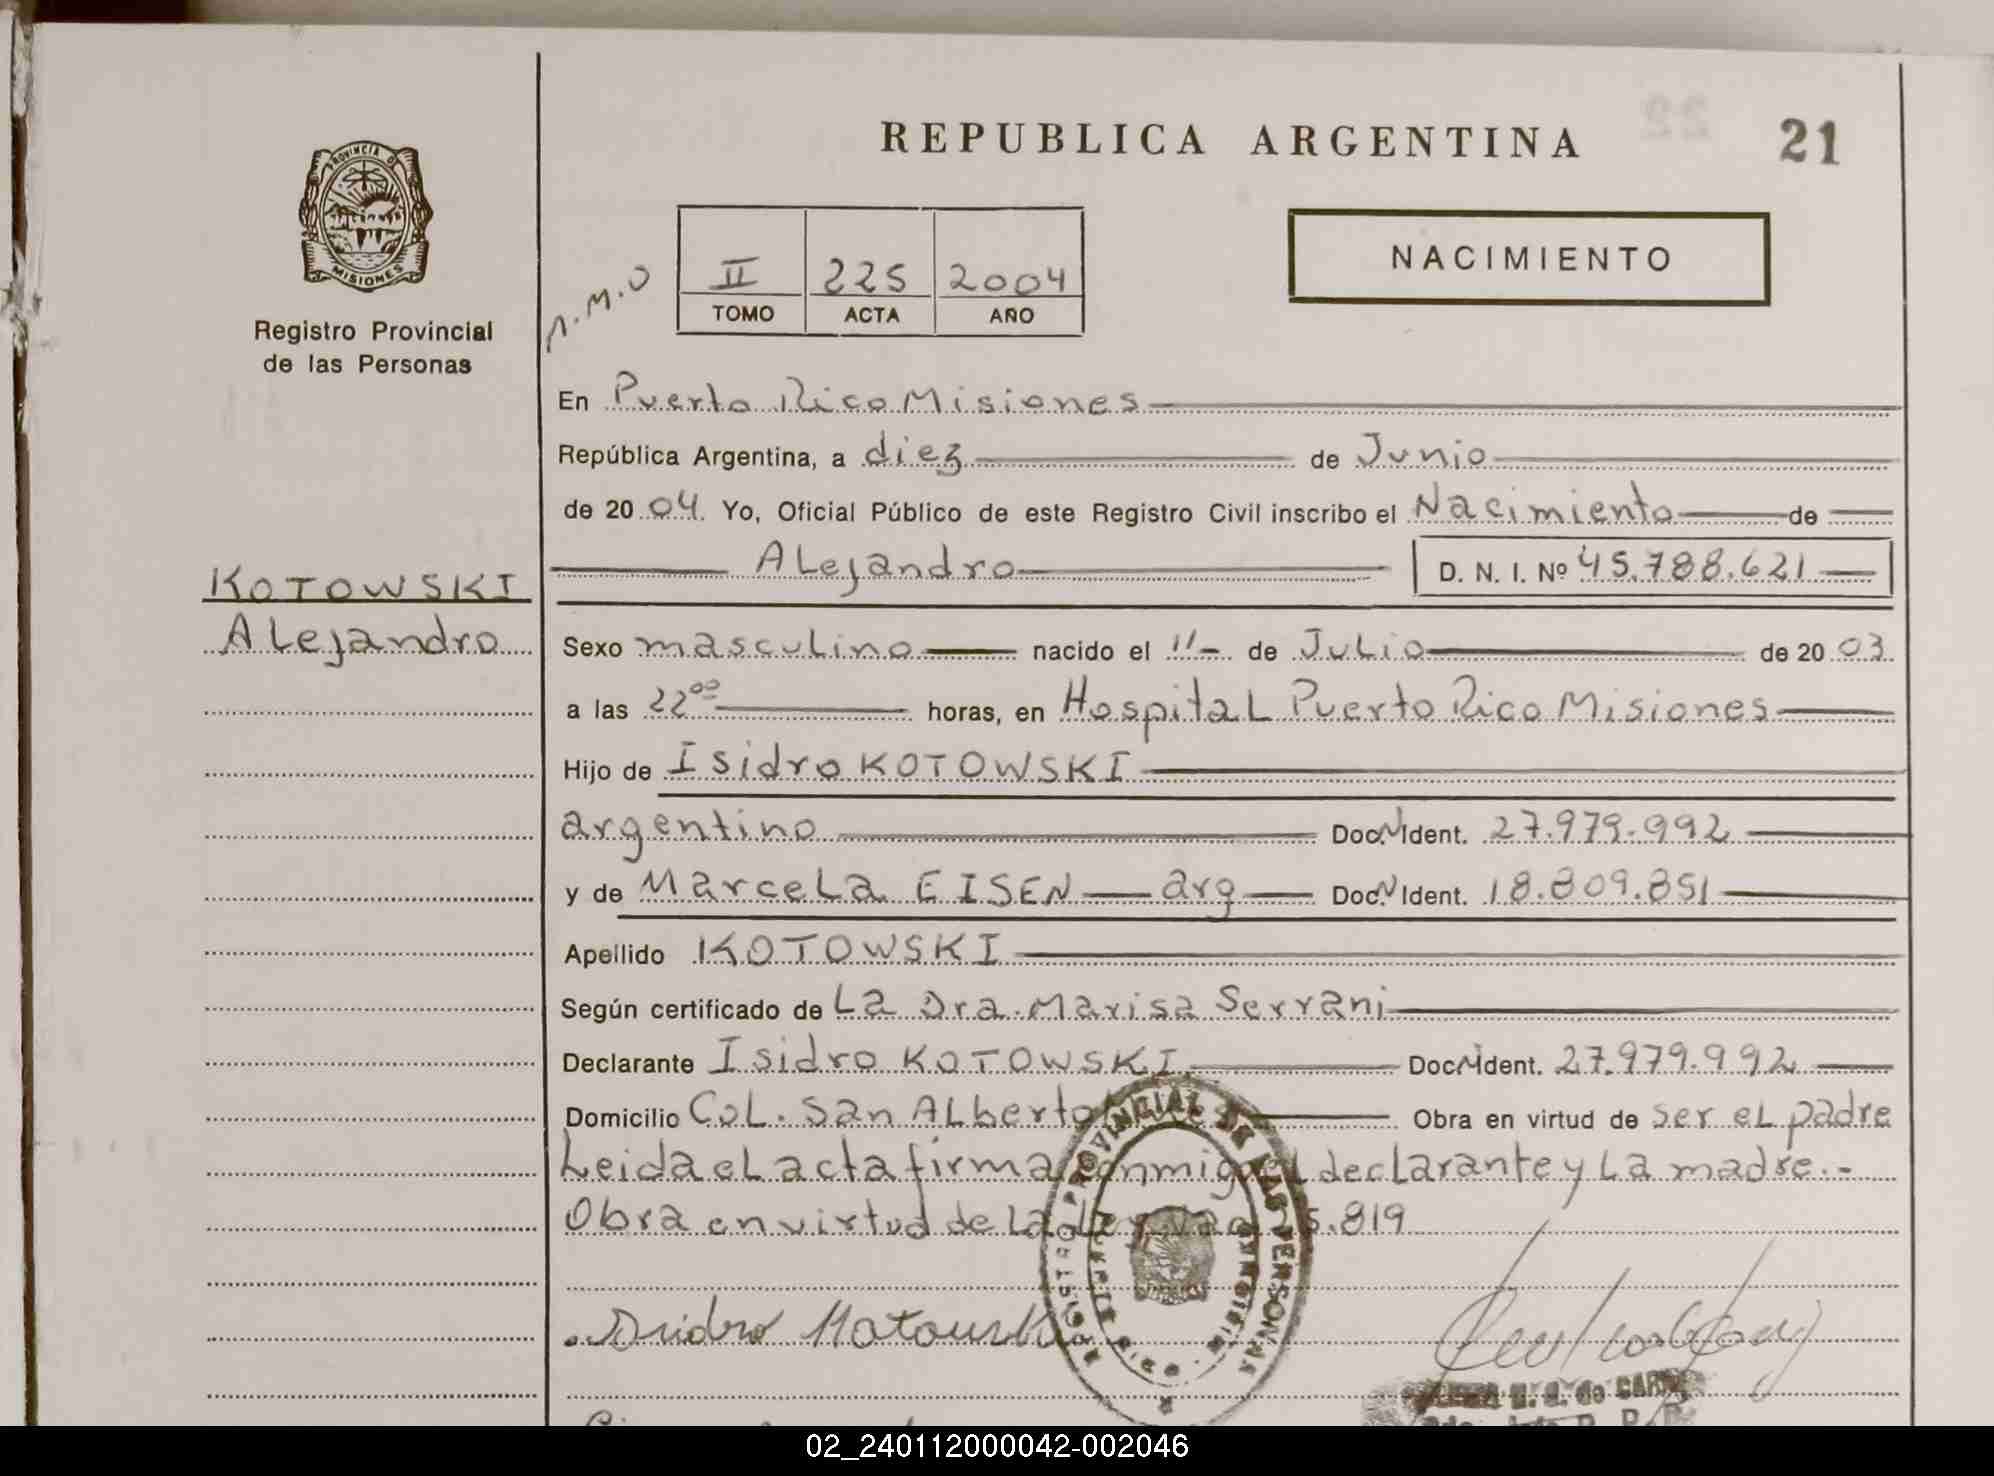 REPUBLICA ARGENTINA
21
PROVINCIA DE
MISIONES
Registro Provincial
de las Personas
NACIMIENTO
II 225 2004
TOMO ACTA AÑO
En Puerto Rico Misiones
República Argentina, a diez de Junio
de 2004 Yo, Oficial Público de este Registro Civil inscribo el Nacimiento de
Alejandro D. N. I. Nº 45.788.621
KOTOWSKI
Alejandro
Sexo masculino nacido el 11 de Julio de 2003
a las 22⁰⁰ horas, en Hospital Puerto Rico Misiones
Hijo de Isidro KOTOWSKI
argentino Doc. N Ident. 27.979.992
y de Marcela EISEN arg Doc. N Ident. 18.809.851
Apellido KOTOWSKI
Según certificado de La Dra. Marisa Serrani
Declarante Isidro KOTOWSKI Doc. N Ident. 27.979.992
Domicilio Col. San Alberto Obra en virtud de ser el padre
Leida el acta firma conmigo el declarante y la madre.-
Obra en virtud de la Ley 25.819
REGISTRO PROVINCIAL DE LAS PERSONAS
Isidro Kotowski
02_240112000042-002046